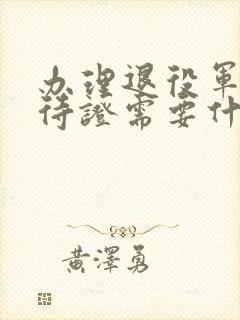 办理退役軍
待證需要什
黃澤勇